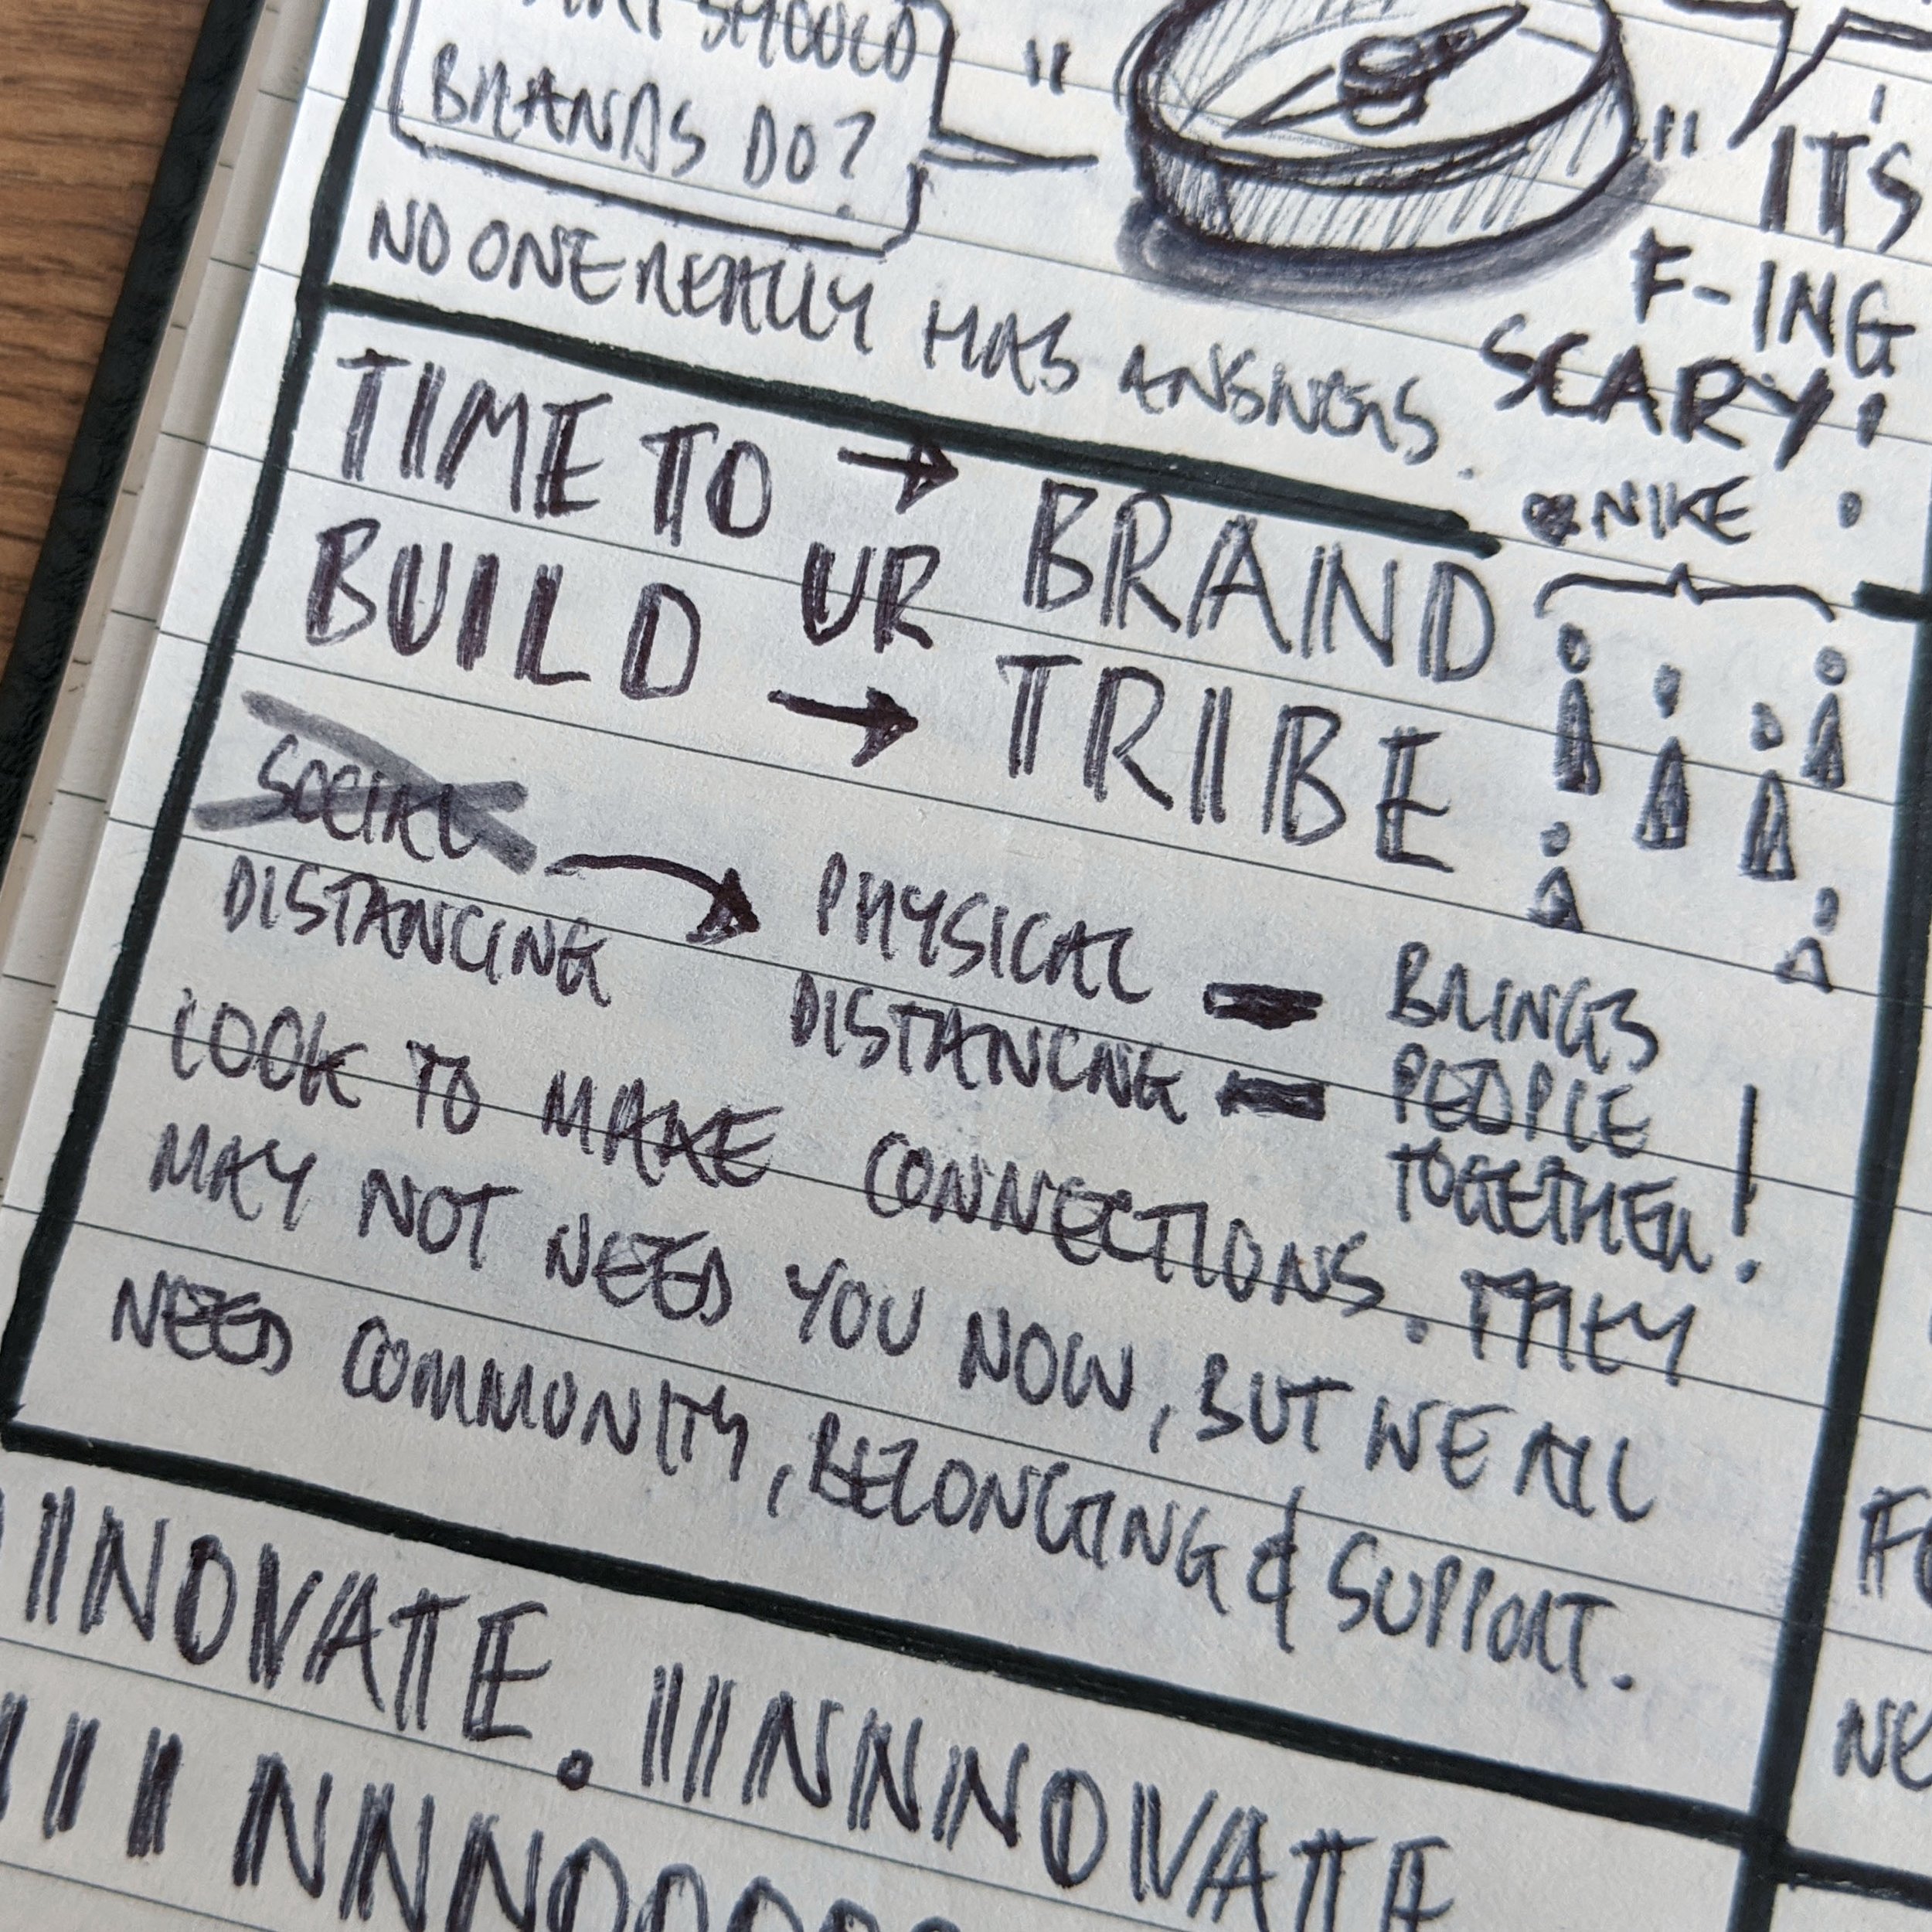 SHOULD
BRANDS DO?
"
"
IT'S
F-ING
SCARY!
NO ONE REALLY HAS ANSWERS.
NIKE
TIME TO → BRAND
BUILD UR → TRIBE
SOCIAL
DISTANCING
PHYSICAL
DISTANCING
=
BRINGS
PEOPLE
TOGETHER!
LOOK TO MAKE CONNECTIONS. THEY
MAY NOT NEED YOU NOW, BUT WE ALL
NEED COMMUNITY, BELONGING & SUPPORT.
IINOVATE. IIINNNOVATE